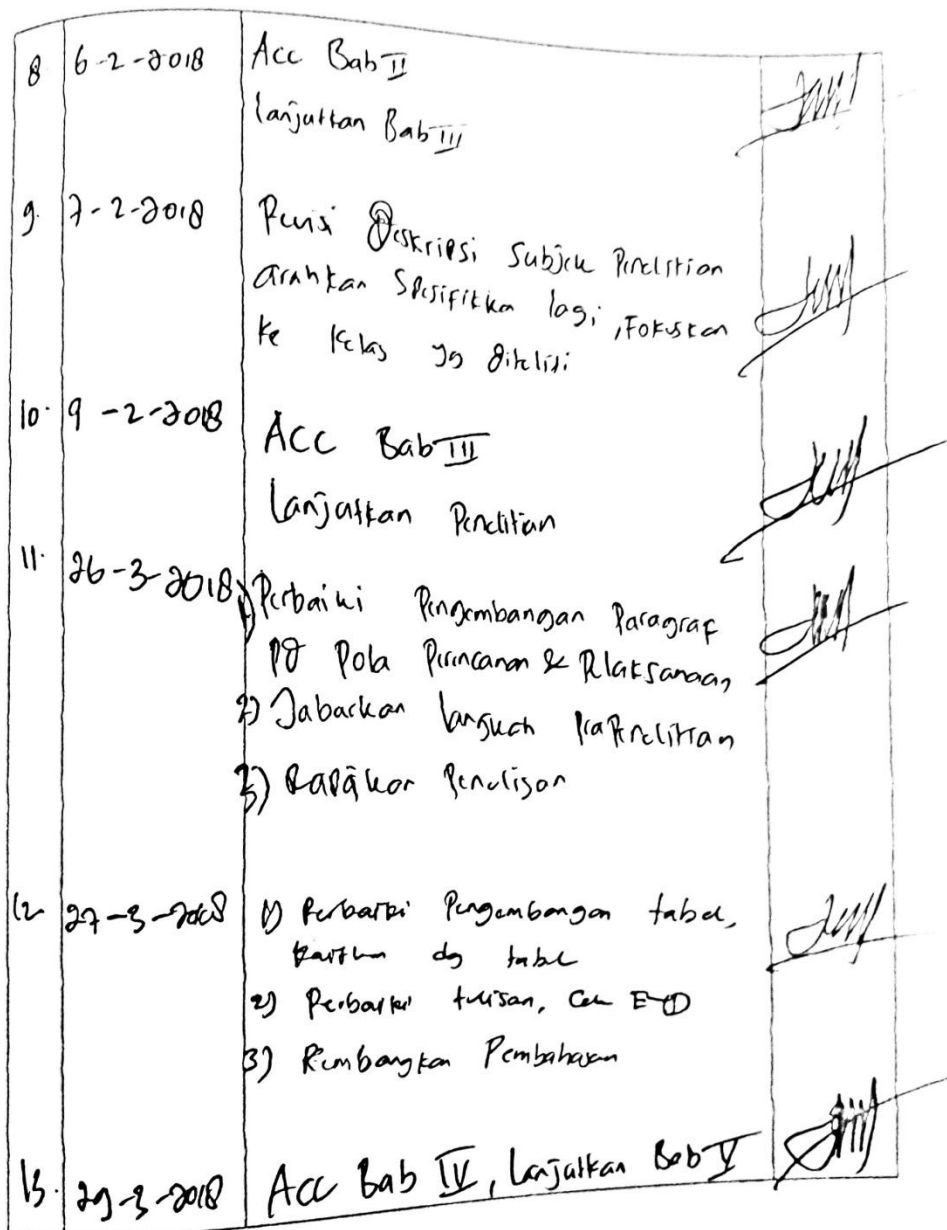 8 6-2-2018 Acc Bab II
lanjutkan Bab III
9. 7-2-2018 Revisi Deskripsi Subjek Penelitian
arahkan Spesifikkan lagi, Fokuskan
ke Kelas yg diteliti
10. 9-2-2018 ACC Bab III
Lanjutkan Penelitian
11. 26-3-2018 1) Perbaiki Pengembangan Paragraf
pd Pola Perincanan & Pelaksanaan
2) Jabarkan langkah pra Penelitian
3) Rapikan Penulisan
12 27-3-2018 1) Perbaiki Pengembangan tabel,
kaitkan dg tabel
2) Perbaiki tulisan, Cek
3) Kembangkan Pembahasan
13. 29-3-2018 Acc Bab IV, Lanjutkan Bab V